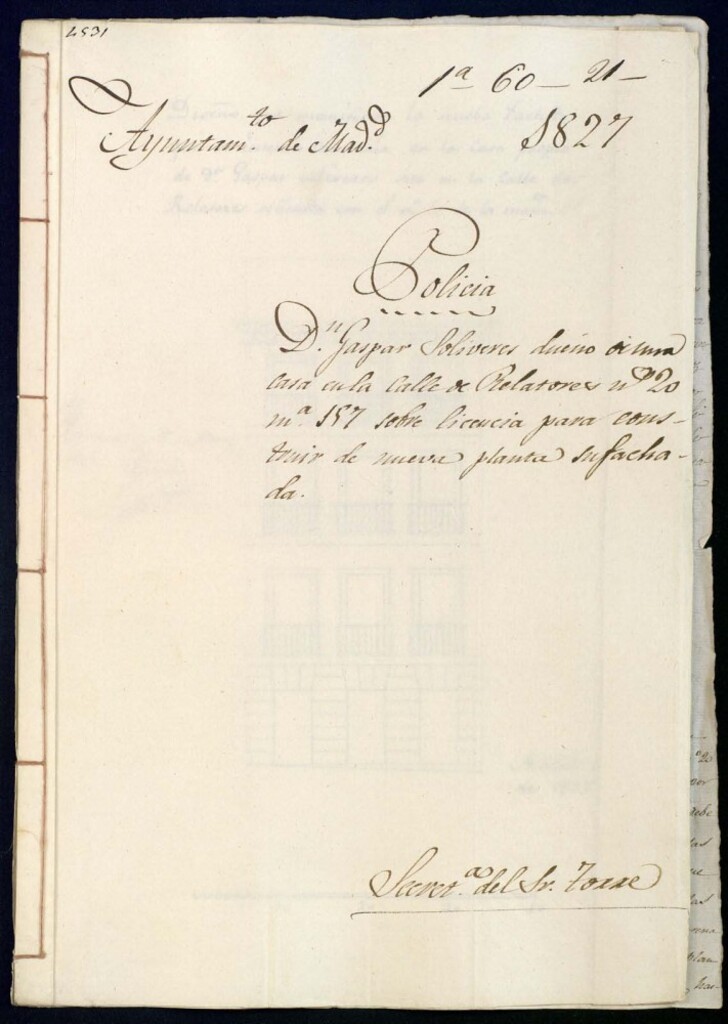 4531
1ª 60 - 21 -
Ayuntam.to de Mad.d 1827
Policia
D.n Gaspar Soliveres dueño de una
casa en la Calle de Relatores nº 20
m.ª 157 sobre licencia para cons-
truir de nueva planta su facha-
da.
Secret.ª del Sr. Torre